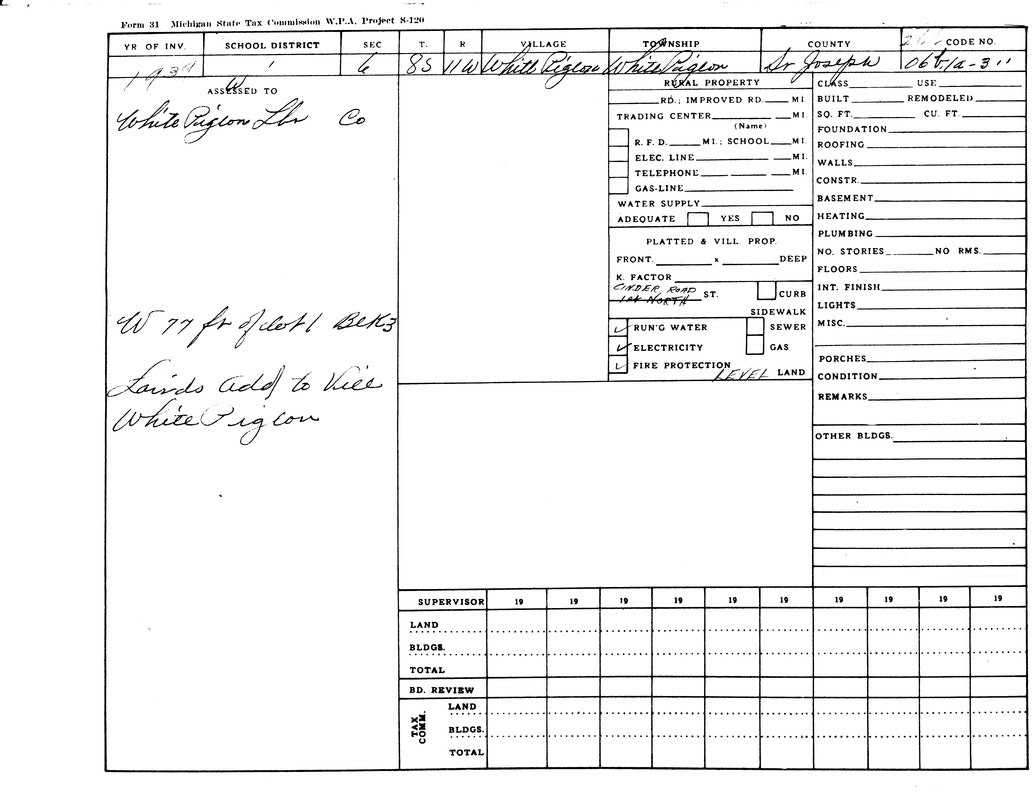 Form 31 Michigan State Tax Commission W.P.A. Project S-120
YR OF INV. SCHOOL DISTRICT SEC T. R VILLAGE TOWNSHIP COUNTY CODE NO.
1939 1 6 8S 11W White Pigeon White Pigeon St Joseph
ASSESSED TO
White Pigeon Lbr Co
W 77 ft of Lot 1 Blk 3
Lairds Add to Vill
White Pigeon
RURAL PROPERTY
RD.; IMPROVED RD. MI.
TRADING CENTER MI.
(Name)
R. F. D. MI.; SCHOOL MI.
ELEC. LINE MI.
TELEPHONE MI.
GAS-LINE
WATER SUPPLY
ADEQUATE YES NO
PLATTED & VILL PROP.
FRONT. x DEEP
K. FACTOR
CINDER ROAD
ST. CURB
SIDEWALK
✓ RUN'G WATER SEWER
✓ ELECTRICITY GAS
✓ FIRE PROTECTION
LEVEL LAND
CLASS USE
BUILT REMODELED
SQ. FT. CU. FT.
FOUNDATION
ROOFING
WALLS
CONSTR.
BASEMENT
HEATING
PLUMBING
NO. STORIES NO RMS.
FLOORS
INT. FINISH
LIGHTS
MISC.
PORCHES
CONDITION
REMARKS
OTHER BLDGS.
SUPERVISOR 19 19 19 19 19 19 19 19 19 19
LAND
BLDGS.
TOTAL
BD. REVIEW
TAX COMM.
LAND
BLDGS.
TOTAL